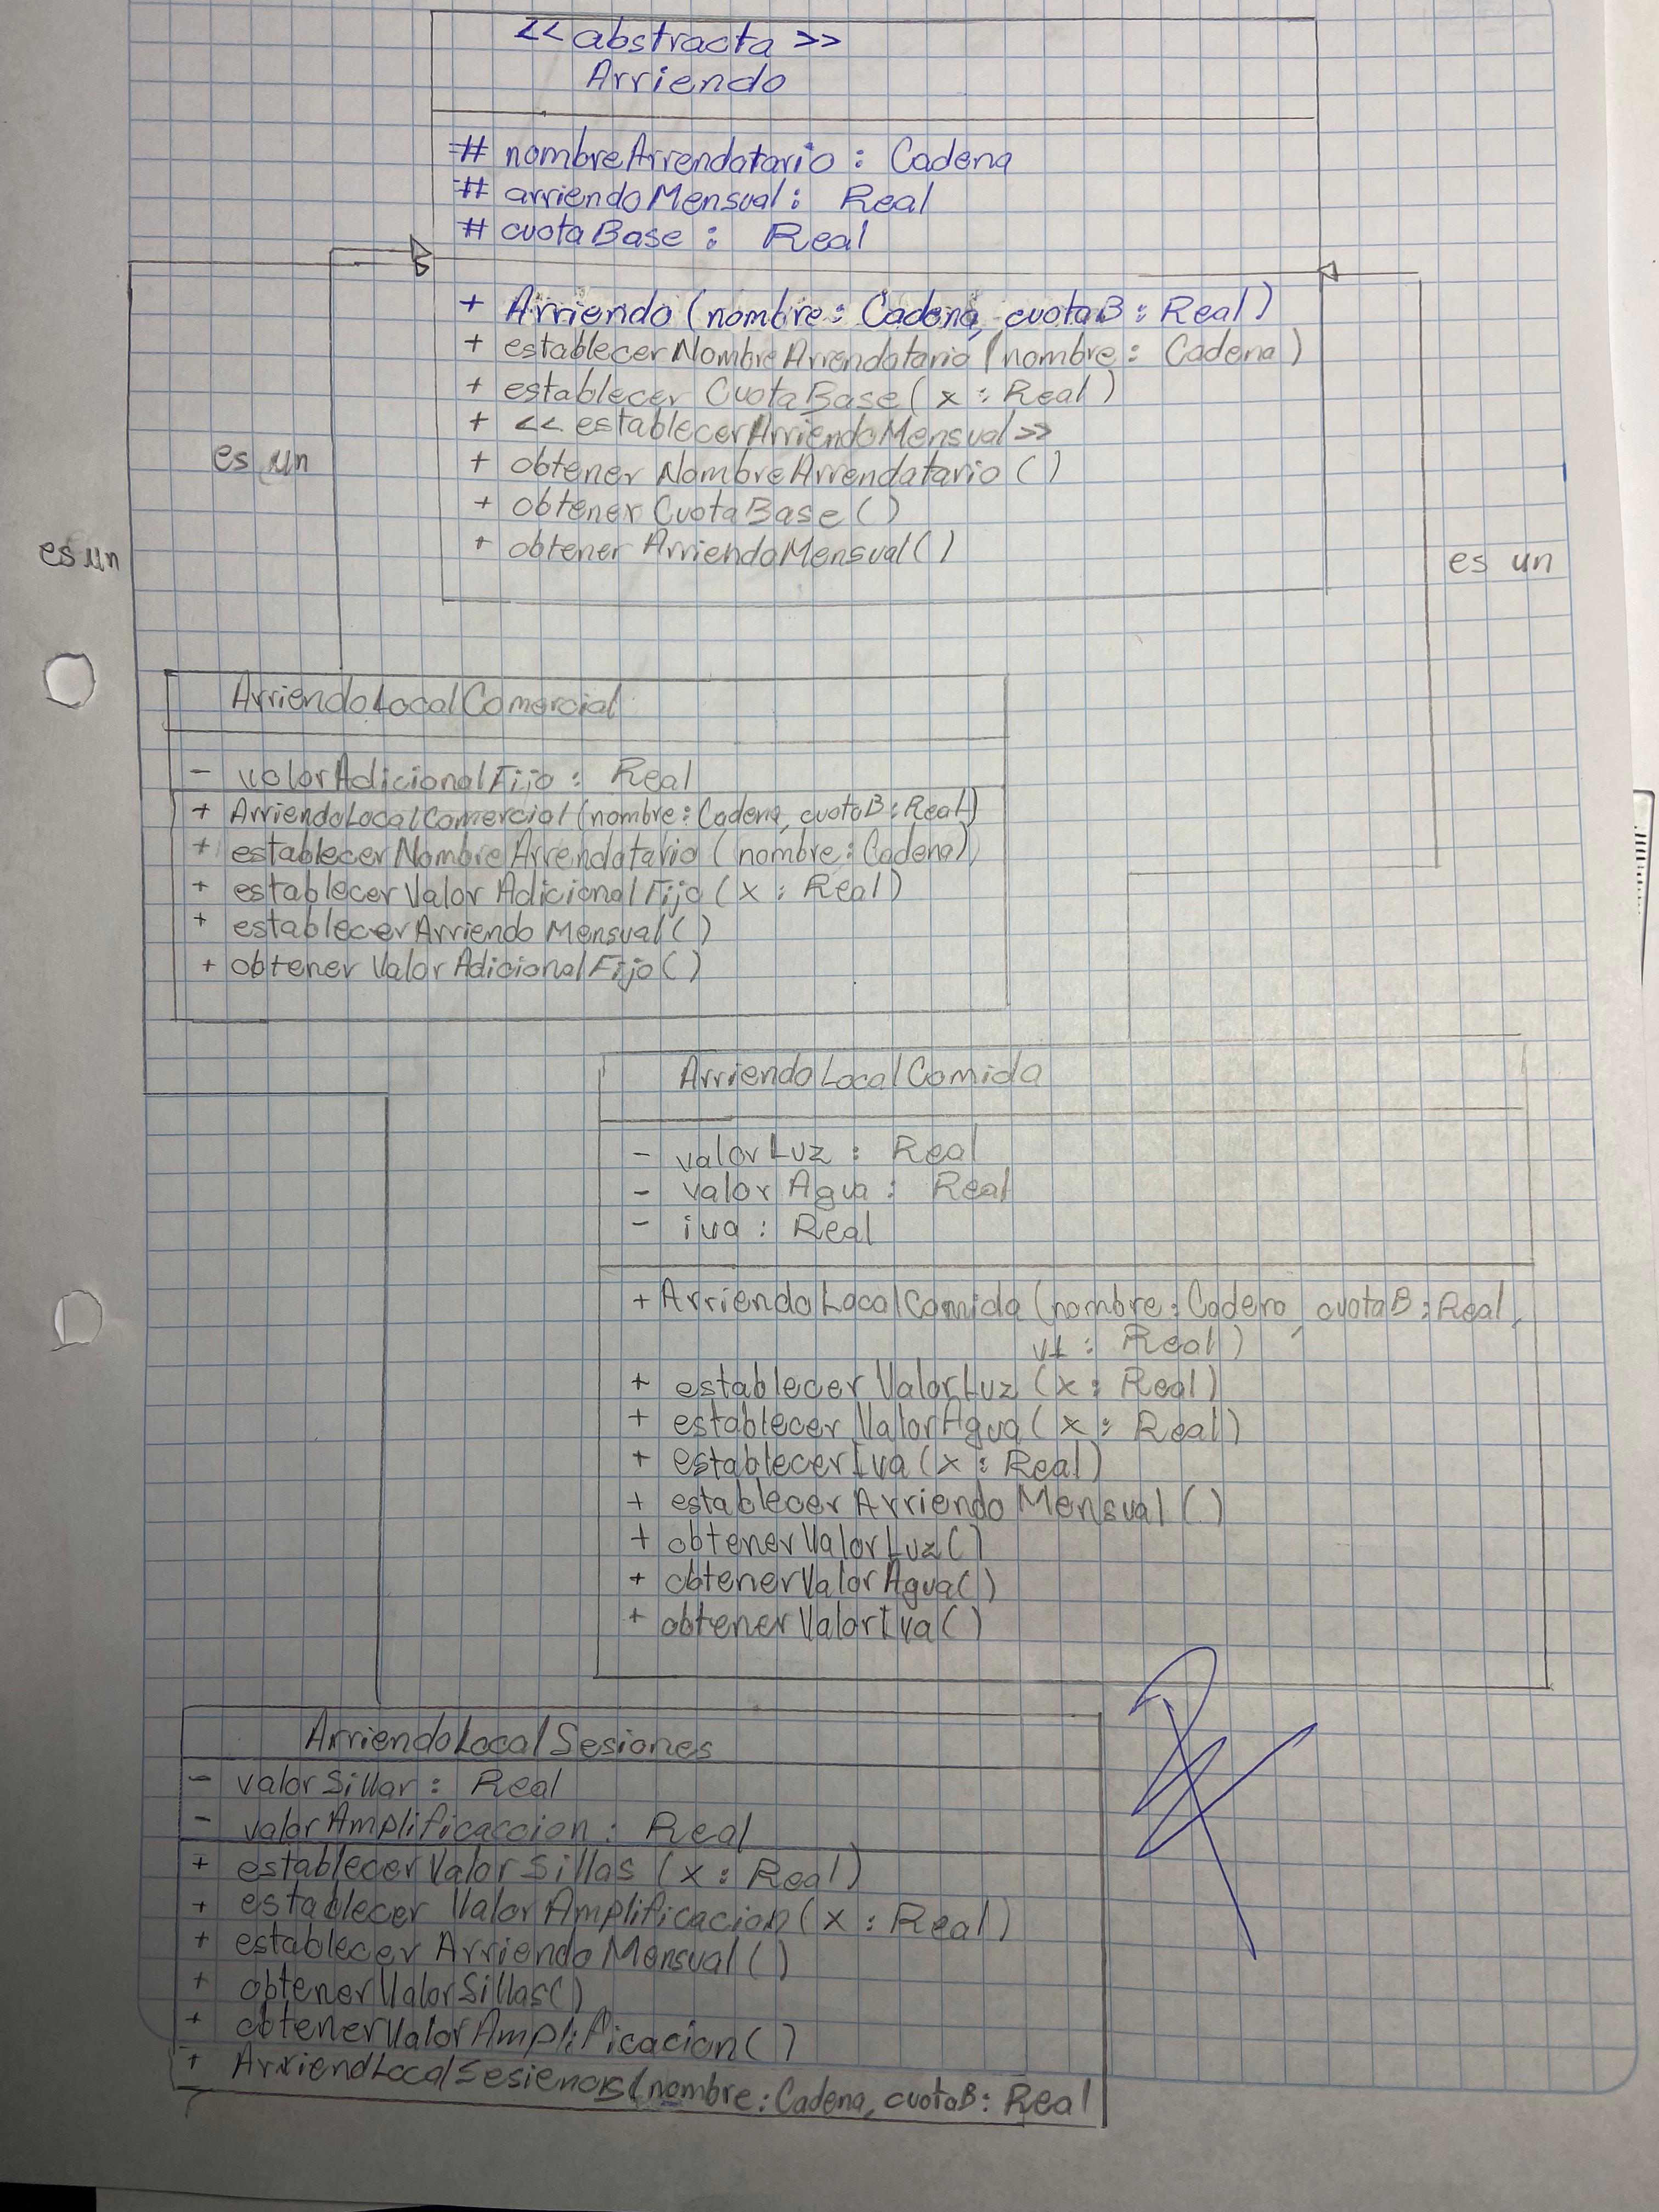 << abstracta >>
Arriendo
# nombreArrendatario : Cadena
# arriendoMensual : Real
# cuotaBase : Real
+ Arriendo (nombre : Cadena, cuotaB : Real)
+ establecerNombreArrendatario (nombre : Cadena)
+ establecer CuotaBase ( x : Real )
+ << establecerArriendoMensual >>
+ obtener NombreArrendatario ( )
+ obtener CuotaBase ( )
+ obtener ArriendoMensual ( )
es un
es un
es un
ArriendoLocalComercial
- valorAdicionalFijo : Real
+ ArriendoLocalComercial (nombre : Cadena, cuotaB : Real)
+ establecerNombreArrendatario ( nombre : Cadena)
+ establecerValorAdicionalFijo ( x : Real )
+ establecerArriendo Mensual ( )
+ obtener ValorAdicionalFijo ( )
ArriendoLocalComida
- valorLuz : Real
- valor Agua : Real
- iva : Real
+ ArriendoLocalComida (nombre : Cadena, cuotaB : Real,
: Real )
+ establecer ValorLuz ( x : Real )
+ establecer ValorAgua ( x : Real )
+ establecerIva ( x : Real )
+ establecer Arriendo Mensual ( )
+ obtenerValorLuz ( )
+ obtenerValorAgua ( )
+ obtenerValorIva ( )
ArriendoLocalSesiones
- valorSillar : Real
- valorAmplificaccion : Real
+ establecerValorSillas ( x : Real )
+ establecer ValorAmplificacion ( x : Real )
+ establecer ArriendoMensual ( )
+ obtenerValorSillas( )
+ obtenerValorAmplificacion ( )
+ (nombre : Cadena, cuotaB : Real